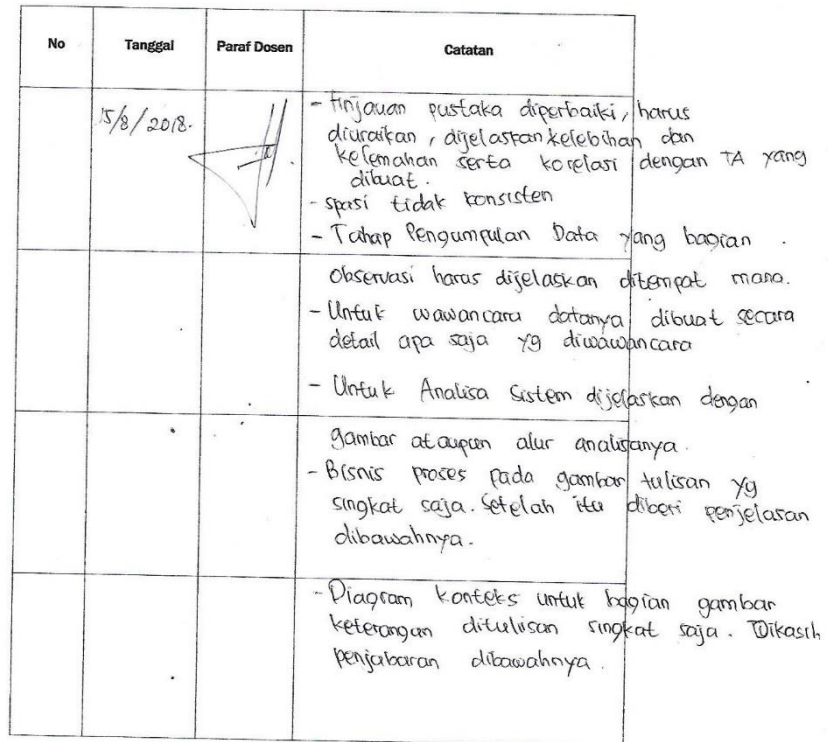 No Tanggal Paraf Dosen Catatan
15/8/2018.
- Tinjauan pustaka diperbaiki, harus
diuraikan, dijelaskan kelebihan dan
kelemahan serta korelasi dengan TA yang
dibuat.
- spasi tidak konsisten
- Tahap Pengumpulan Data yang bagian
observasi harus dijelaskan ditempat mana.
- Untuk wawancara datanya dibuat secara
detail apa saja yg diwawancara
- Untuk Analisa Sistem dijelaskan dengan
gambar ataupun alur analisanya.
- Bisnis proses pada gambar tulisan yg
singkat saja. Setelah itu diberi penjelasan
dibawahnya.
- Diagram konteks untuk bagian gambar
keterangan ditulisan singkat saja. Dikasih
penjabaran dibawahnya.